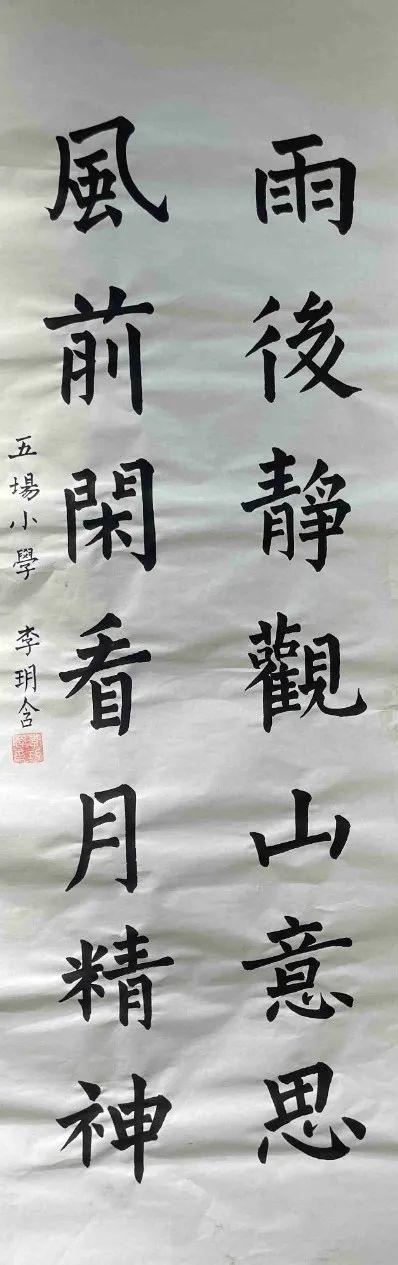 雨後靜觀山意思
風前閑看月精神
五場小學 李玥含